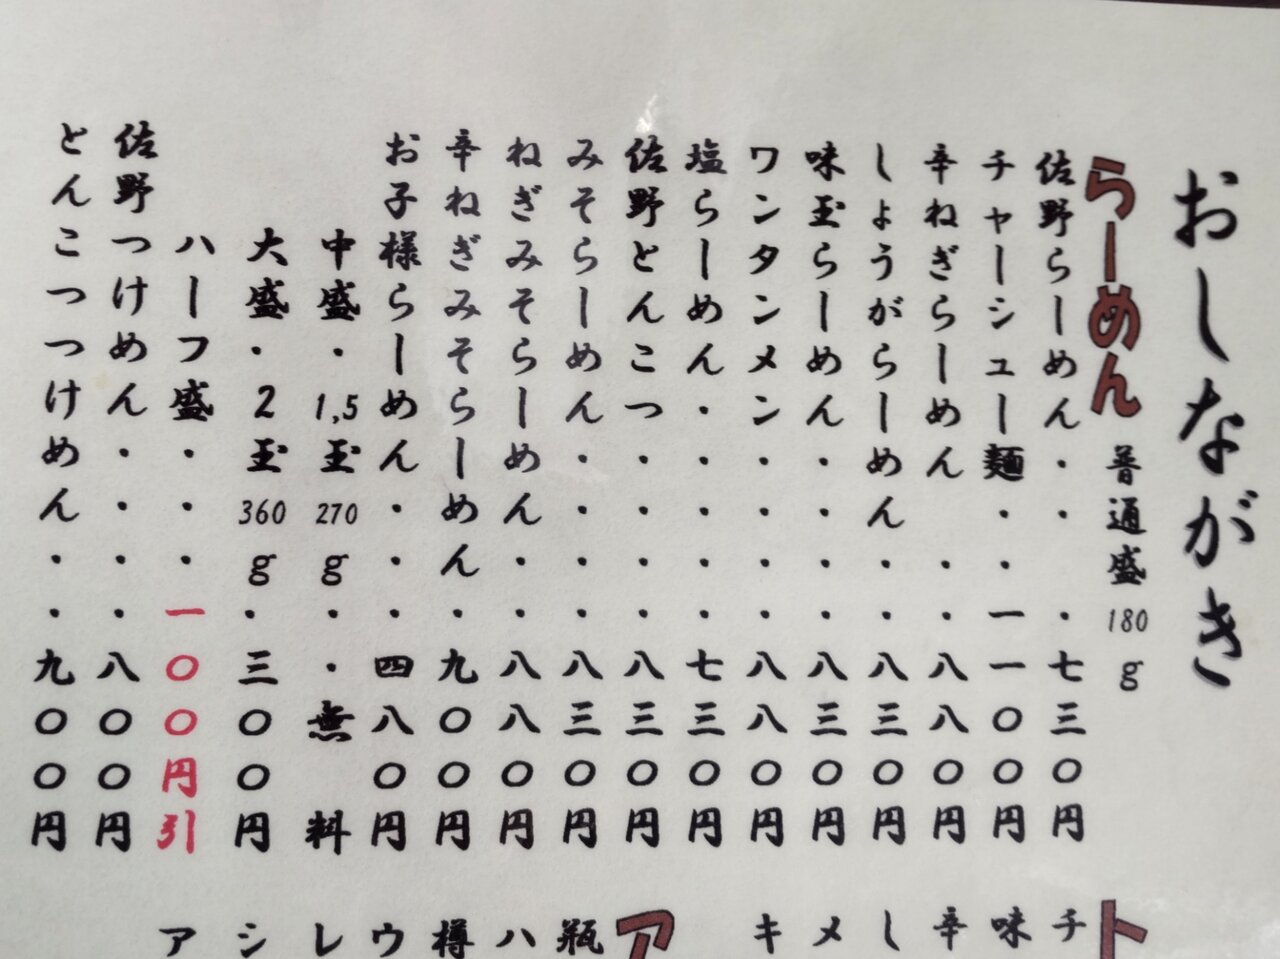 おしながき
らーめん 普通盛180g
佐野らーめん・・・七三〇円
チャーシュー麺・・一一〇〇円
辛ねぎらーめん・・八八〇円
しょうがらーめん・・八三〇円
味玉らーめん・・・・八三〇円
ワンタンメン・・・・八八〇円
塩らーめん・・・・・七三〇円
佐野とんこつ・・・・八三〇円
みそらーめん・・・・八三〇円
ねぎみそらーめん・・八八〇円
辛ねぎみそらーめん・九〇〇円
お子様らーめん・・・四八〇円
中盛・1,5玉270g・・無料
大盛・2玉360g・三〇〇円
ハーフ盛・・・一〇〇円引
佐野つけめん・・・・八〇〇円
とんこつつけめん・・九〇〇円
ト
チ
味
辛
し
メ
キ
ア
瓶
ハ
樽
ウ
レ
シ
ア